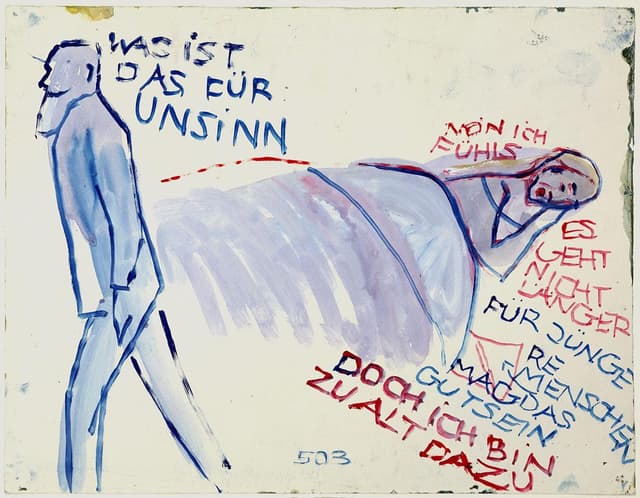 WAS IST
DAS FÜR
UNSINN
NEIN ICH
FÜHLS
ES
GEHT
NICHT
LÄNGER
FÜR JÜNGE
RE
MENSCHEN
MAG DAS
GUT SEIN
DOCH ICH BIN
ZU ALT DAZU
503